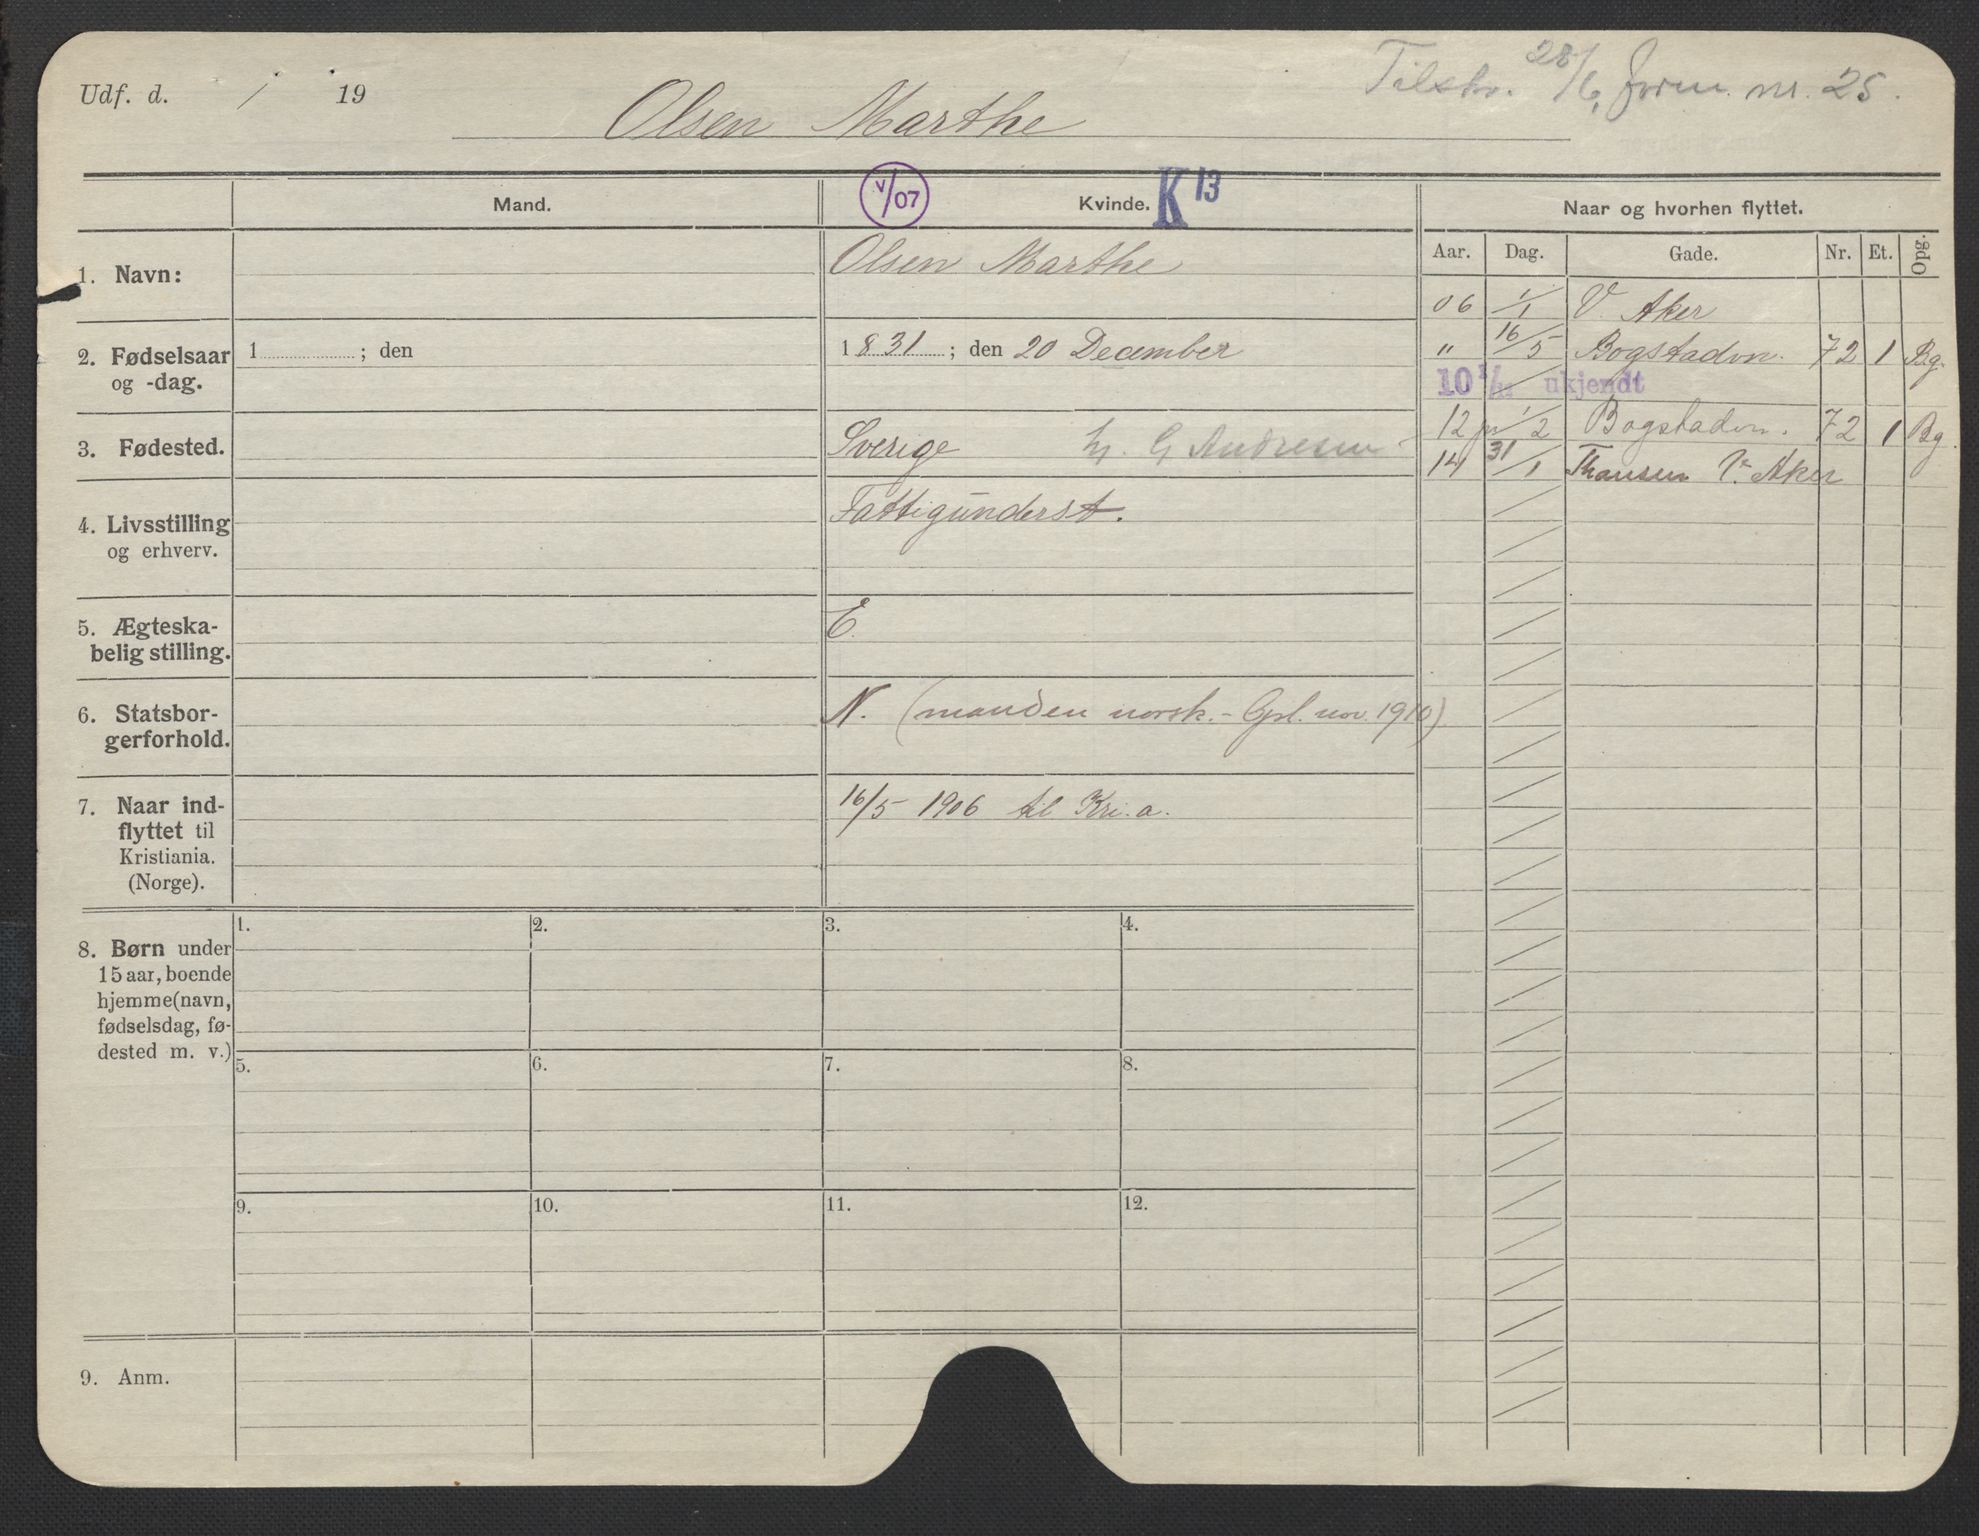 Tilskr. 28/6, form. nr. 25.
Udf. d. / 19
Olsen Marthe
Mand.
V/07
Kvinde. K 13
Naar og hvorhen flyttet.
Aar. Dag. Gade. Nr. Et. Opg.
1. Navn:
Olsen Marthe
2. Fødselsaar
og -dag.
1 ; den
1831; den 20 December
3. Fødested.
Sverige
G Andresen
4. Livsstilling
og erhverv.
Fattigunderst.
5. Ægteska-
belig stilling.
E.
6. Statsbor-
gerforhold.
N. (manden norsk. - Opl. nov. 1910)
7. Naar ind-
flyttet til
Kristiania.
(Norge).
16/5 1906 til Kri.a.
06 1/1 V. Aker
" 16/5 Bogstadvn. 72 1 Bg.
10 ukjendt
12 1/2 Bogstadvn. 72 1 Bg.
14 31/1 V. Aker
8. Børn under
15 aar, boende
hjemme (navn,
fødselsdag, fø-
dested m. v.)
1. 2. 3. 4.
5. 6. 7. 8.
9. 10. 11. 12.
9. Anm.